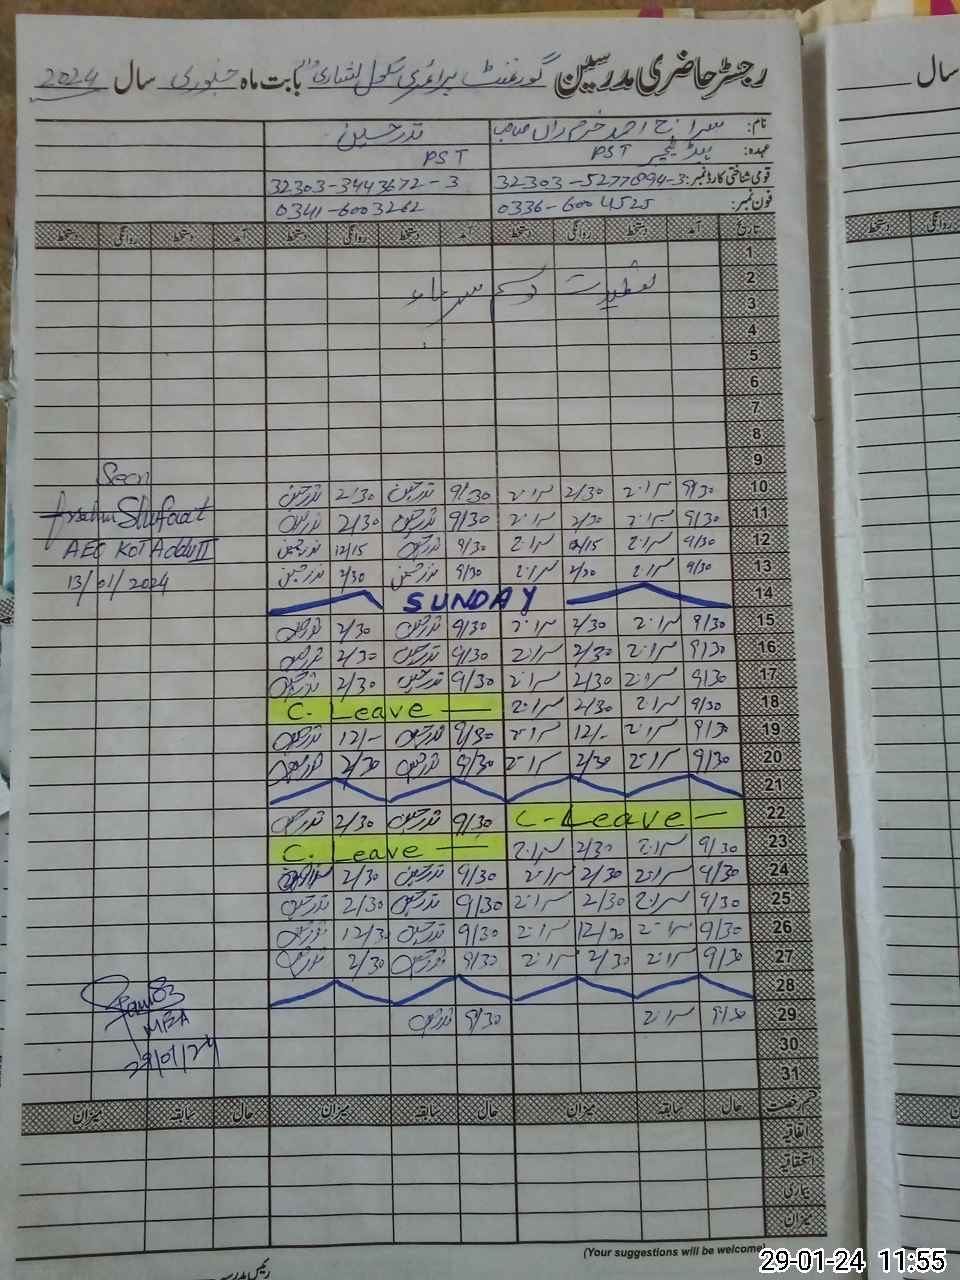 رجسٹر حاضری مدرسین گورنمنٹ پرائمری سکول لشاری بابت ماہ جنوری سال 2024
سال
نام: سراج احمد نذر حسین
عہدہ: ہیڈ ٹیچر PST PST
قومی شناختی کارڈ نمبر: 32303-5277894-3 32303-3443672-3
فون نمبر: 0336-6004525 0341-6003262
تاریخ آمد دستخط روانگی دستخط آمد دستخط روانگی دستخط آمد دستخط روانگی دستخط
دستخط روانگی
1
2 تعطیلات موسم سرماء
3
4
5
6
7
8
9
Seen
10 9/30 سراج 2/30 سراج 9/30 نذر حسین 2/30 نذر حسین
11 9/30 سراج 2/30 سراج 9/30 نذر حسین 2/30 نذر حسین
Shufaat
12 9/30 سراج 12/15 سراج 9/30 نذر حسین 12/15 نذر حسین
AEO KOT Addu II
13 9/30 سراج 2/30 سراج 9/30 نذر حسین 2/30 نذر حسین
13/01/2024
14 SUNDAY
15 9/30 سراج 2/30 سراج 9/30 نذر حسین 2/30 نذر حسین
16 9/30 سراج 2/30 سراج 9/30 نذر حسین 2/30 نذر حسین
17 9/30 سراج 2/30 سراج 9/30 نذر حسین 2/30 نذر حسین
18 9/30 سراج 2/30 سراج C. Leave —
19 9/30 سراج 12/- سراج 9/30 نذر حسین 12/- نذر حسین
20 9/30 سراج 2/30 سراج 9/30 نذر حسین 2/30 نذر حسین
21
22 C-Leave — 9/30 نذر حسین 2/30 نذر حسین
23 9/30 سراج 2/30 سراج C. Leave —
24 9/30 سراج 2/30 سراج 9/30 نذر حسین 2/30
25 9/30 سراج 2/30 سراج 9/30 نذر حسین 2/30 نذر حسین
26 9/30 سراج 12/30 سراج 9/30 نذر حسین 12/3 نذر حسین
27 9/30 سراج 2/30 سراج 9/30 نذر حسین 2/30 نذر حسین
28
29 9/30 سراج 9/30 نذر حسین
MEA
30
29/01/24
31
قسم رخصت حال سابقہ میزان حال سابقہ میزان حال سابقہ میزان
اتفاقیہ
استحقاقیہ
بیماری
میزان
(Your suggestions will be welcome)
رئیس مدرسہ
29-01-24 11:55